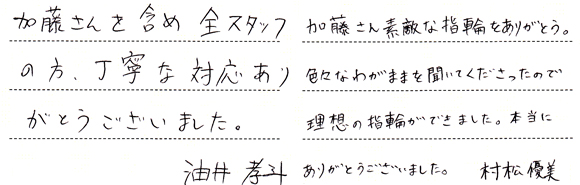 加藤さんを含め 全スタッフ
の方、丁寧な対応あり
がとうございました。
油井 孝斗
加藤さん素敵な指輪をありがとう。
色々なわがままを聞いてくださったので
理想の指輪ができました。本当に
ありがとうございました。 村松優美